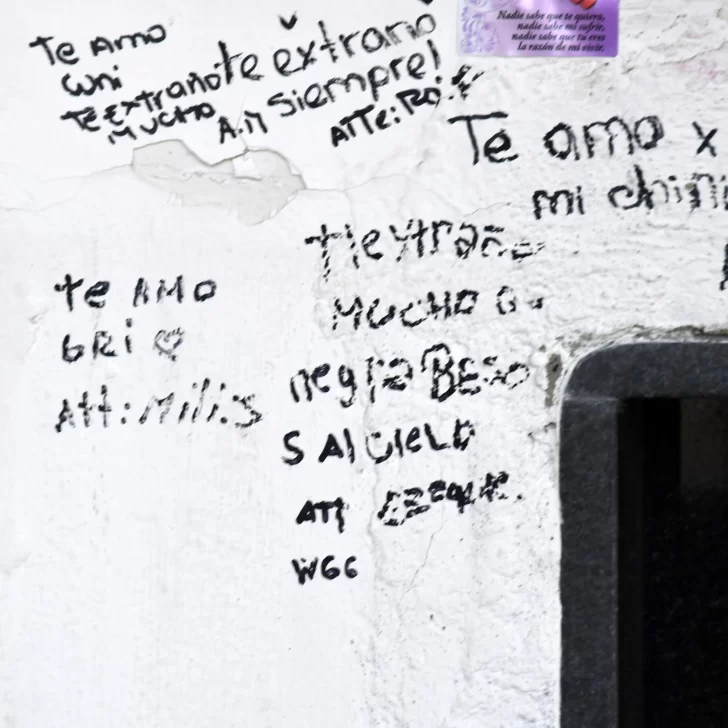 Te Amo
uni
Te Extraño
MUCHO
Te extraño
Siempre!
A.M
ATTe: RO.
Nadie sabe que te quiero,
nadie sabe mi sufrir,
nadie sabe que tu eres
la razón de mi vivir.
Te amo x
mi chini
te AMO
GRi
Att: Milis
MUCHO
negra BESO
S Al CIELO
ATT
WGG